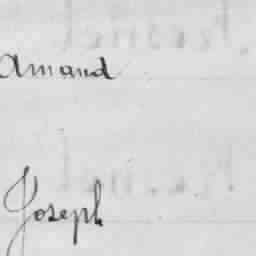 Amand
Joseph